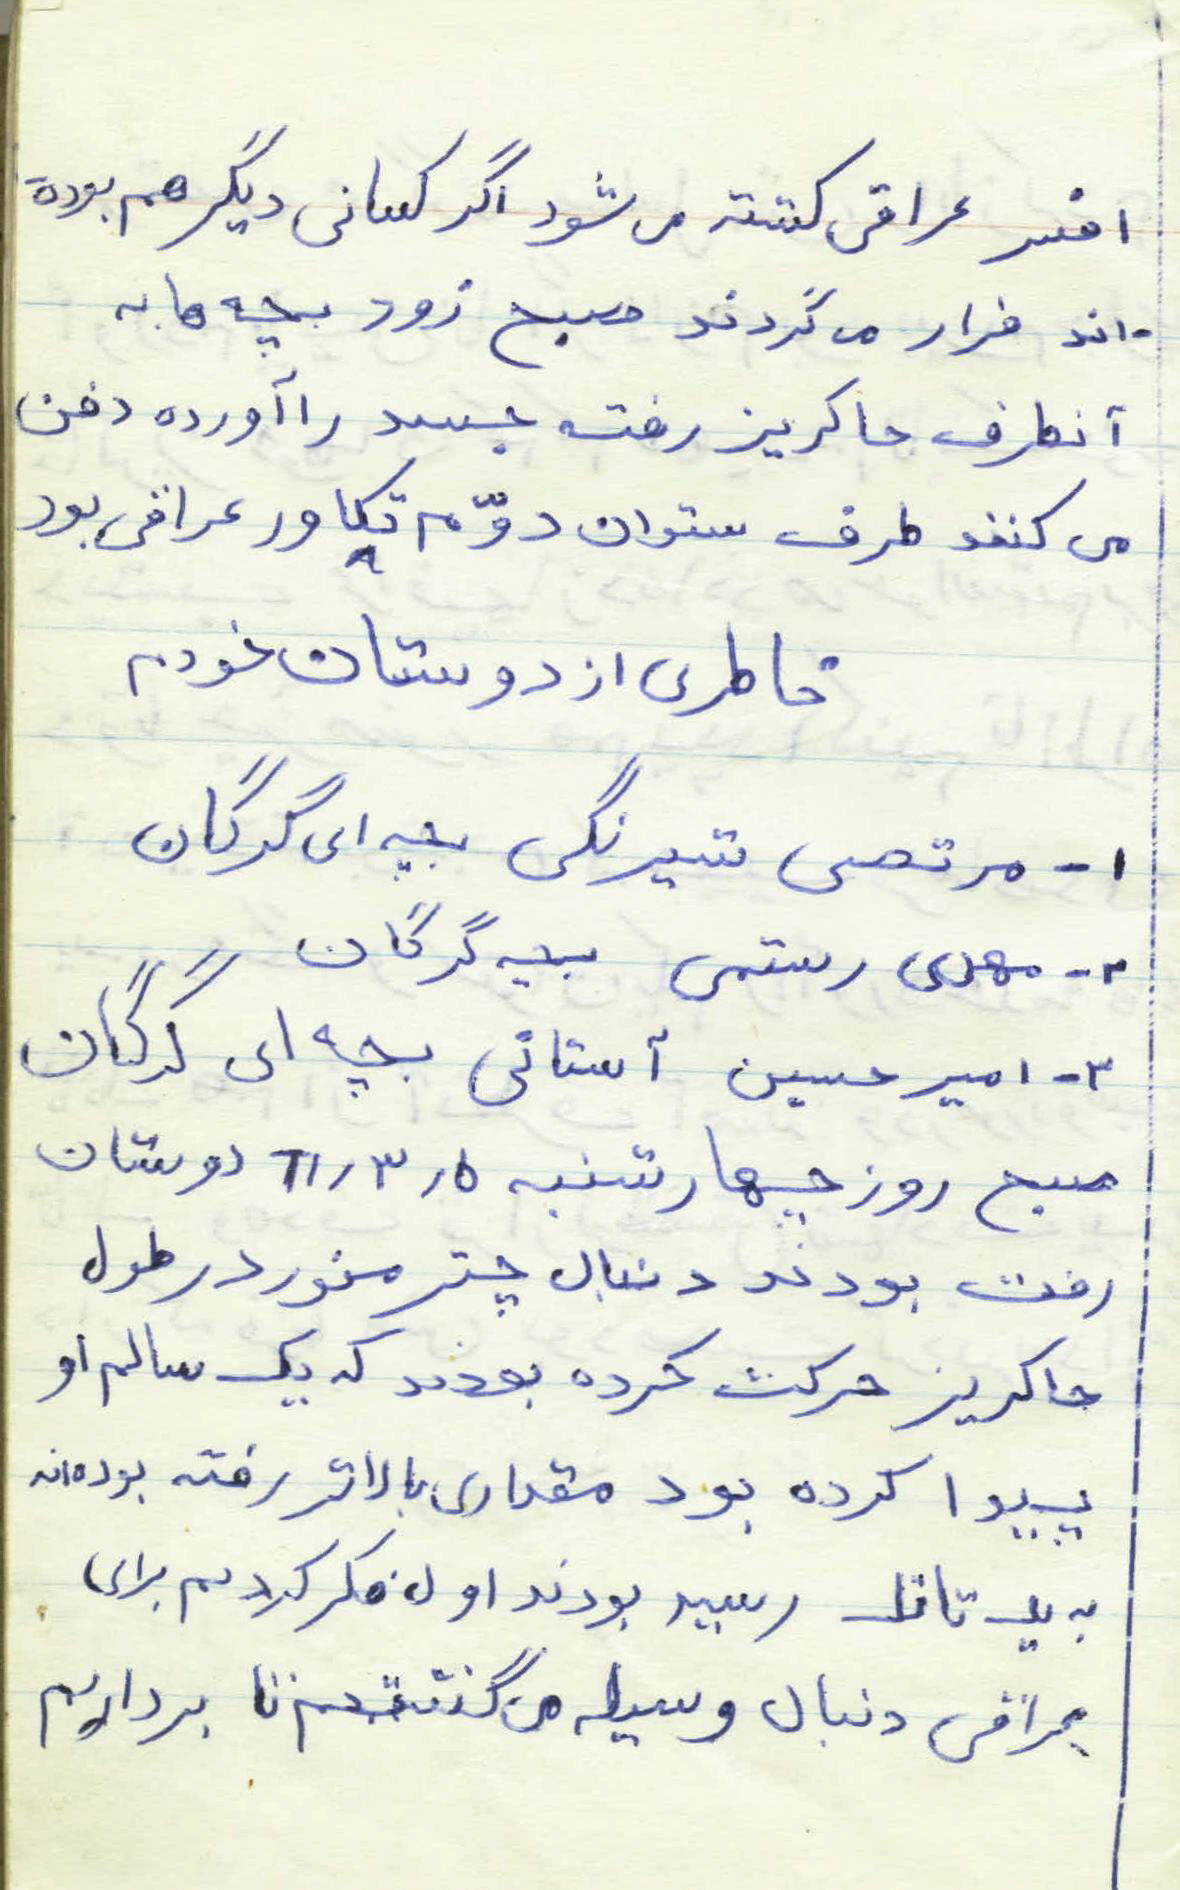 افسر عراقی کشته می شود اگر کسانی دیگر هم بوده
-اند فرار می کردند صبح زود بچه ها به
آنطرف خاکریز رفته جسد را آورده دفن
می کنند طرف ستوان دوّم تکاور عراقی بود
خاطری از دوستان خودم
۱- مرتضی شیرنگی بچه ای گرگان
۲- مهدی رستمی بچه گرگان
۳- امیر حسین آستانی بچه ای گرگان
صبح روز چهارشنبه ۶۱/۳/۵ دوستان
رفت بودند دنبال چتر منور در طول
خاکریز حرکت کرده بودند که یک سالم او
پیدا کرده بود مقداری بالاتر رفته بوده اند
به یک تانک رسید بودند اول فکر کردیم برای
عراقی دنبال وسیله می گشتیم تا برداریم